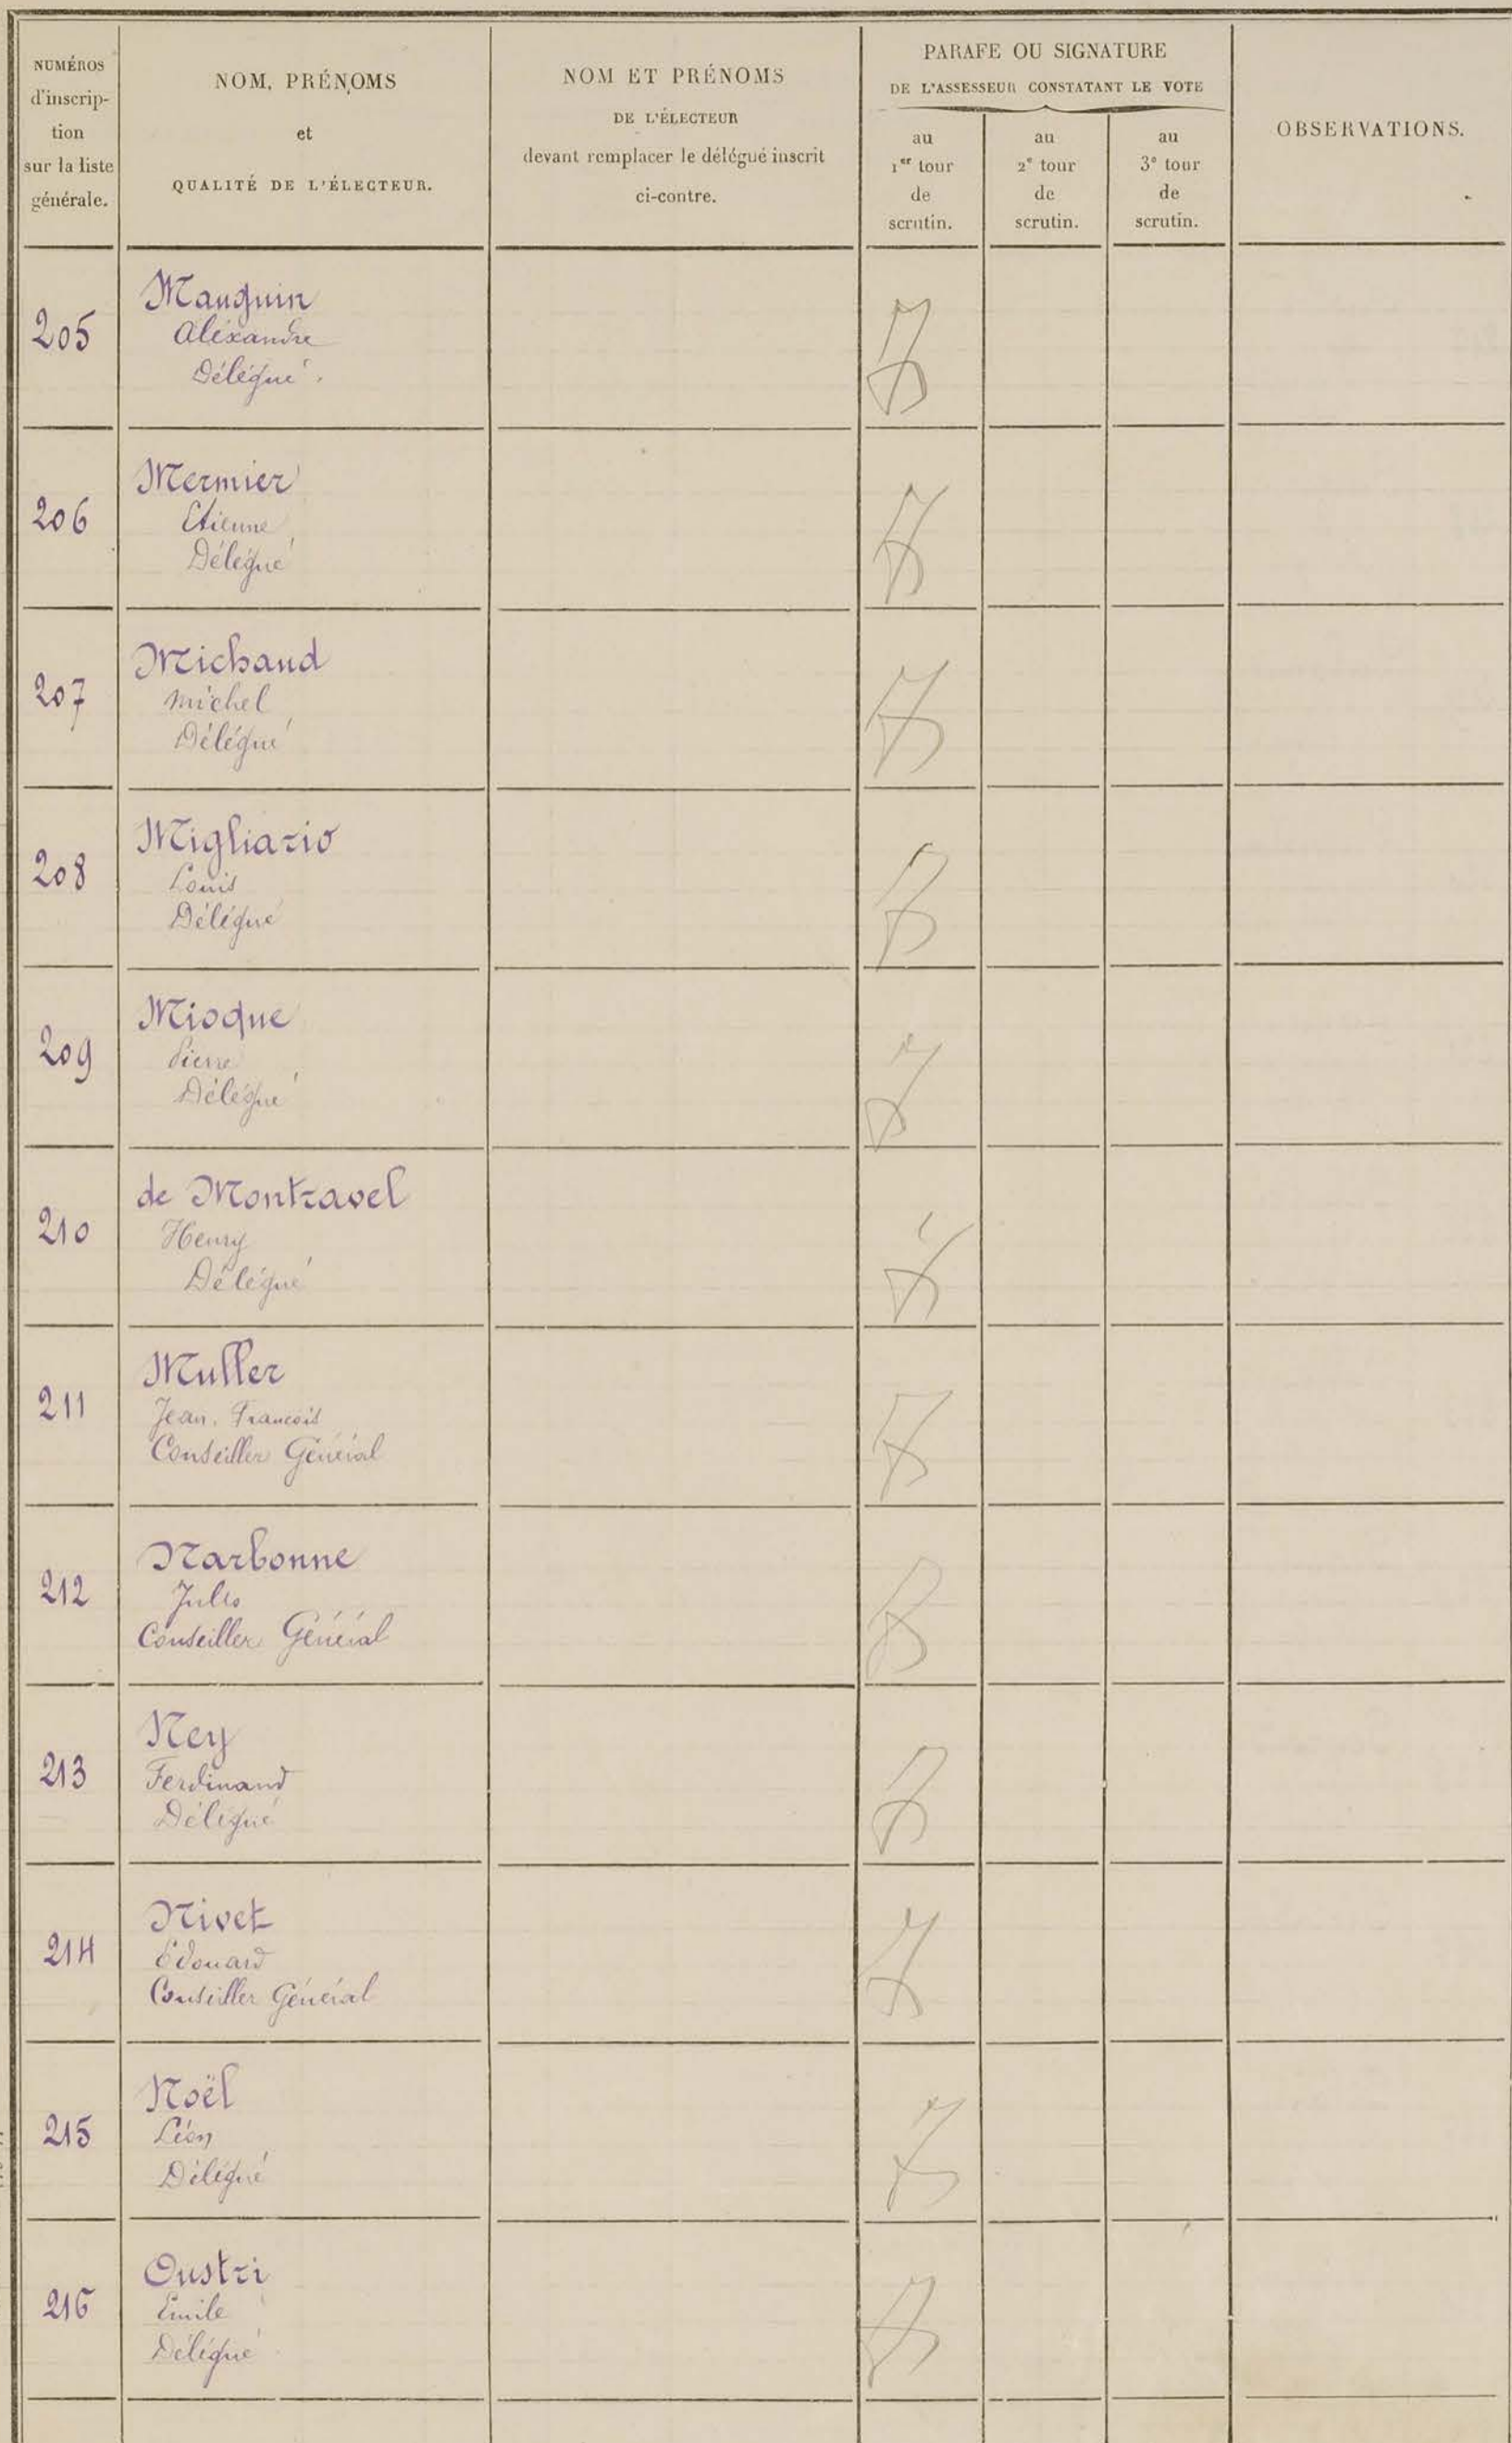 NUMÉROS
d'inscrip-
tion
sur la liste
générale.
NOM, PRÉNOMS
et
QUALITÉ DE L'ÉLECTEUR.
NOM ET PRÉNOMS
DE L'ÉLECTEUR
devant remplacer le délégué inscrit
ci-contre.
PARAFE OU SIGNATURE
DE L'ASSESSEUR CONSTATANT LE VOTE
au
1er tour
de
scrutin.
au
2e tour
de
scrutin.
au
3e tour
de
scrutin.
OBSERVATIONS.
205
Mauguin
Aléxandre
Délégué.
206
Mermier
Etienne
Délégué
207
Michaud
Michel
Délégué
208
Migliario
Louis
Délégué
209
Mioque
Pierre
Délégué
210
de Montravel
Henry
Délégué
211
Muller
Jean, François
Conseiller Général
212
Narbonne
Jules
Conseiller Général
213
Ney
Ferdinand
Délégué
214
Nivet
Edouard
Conseiller Général
215
Noël
Léon
Délégué
216
Oustri
Emile
Délégué